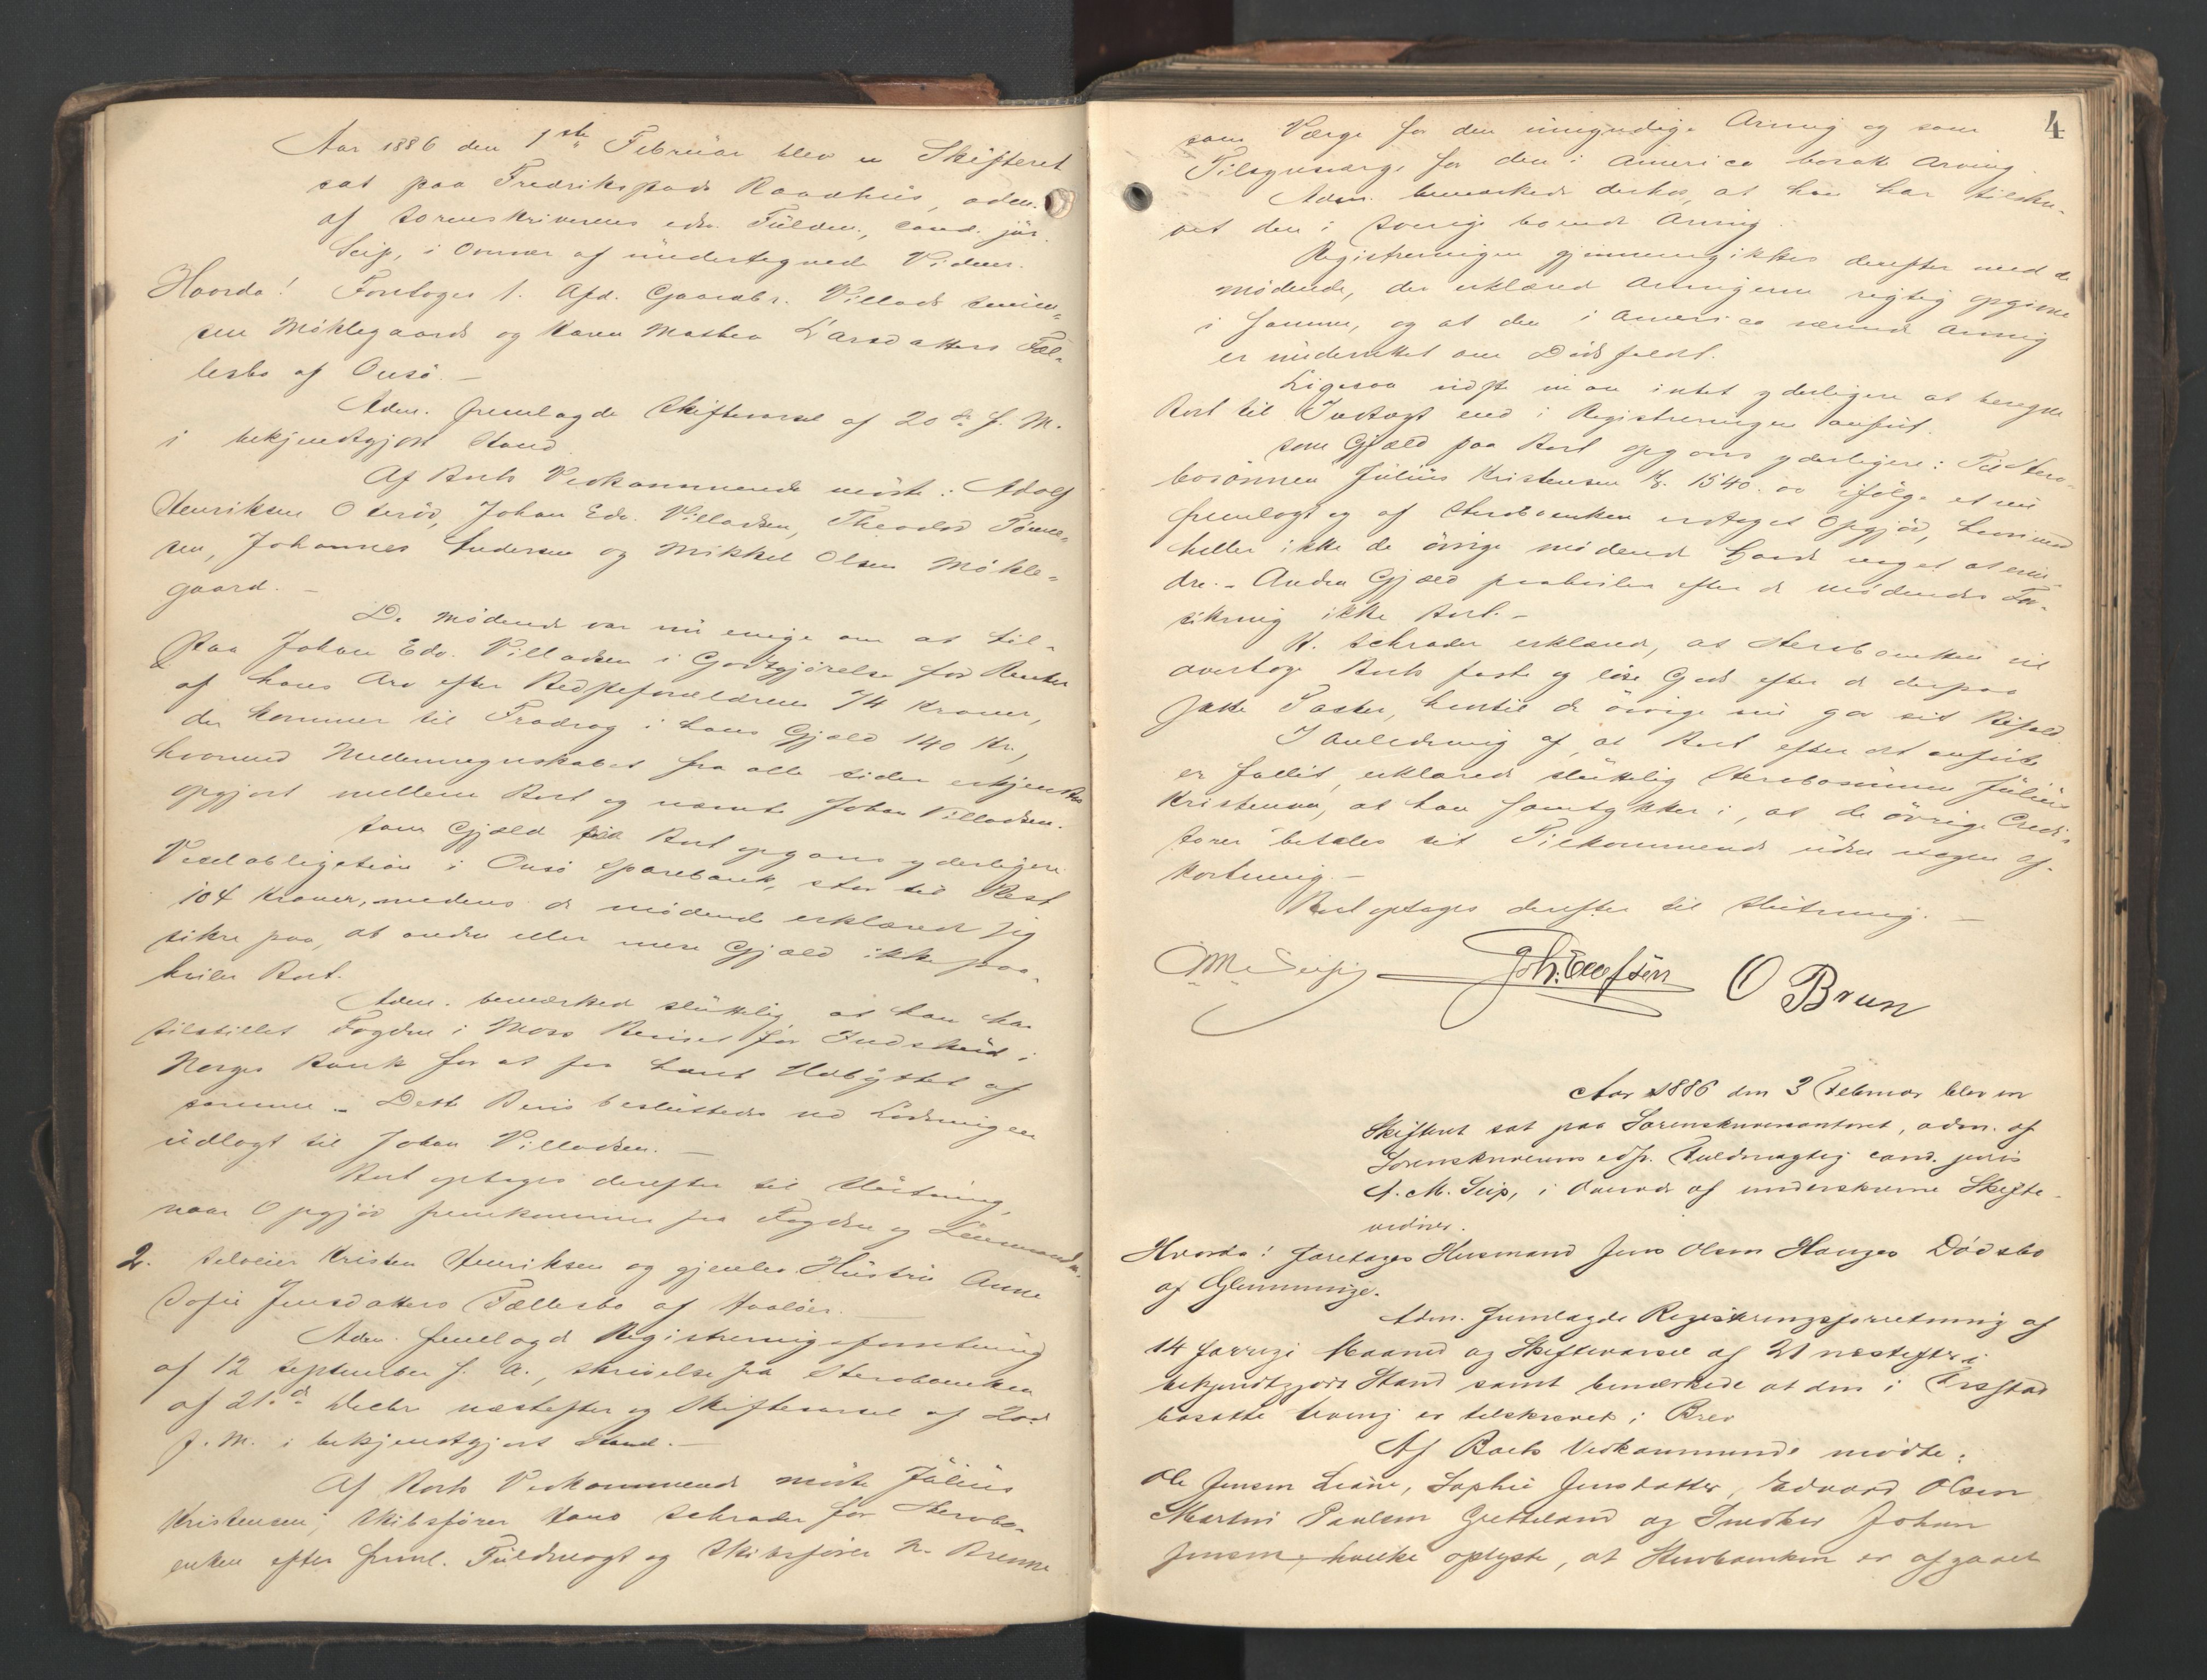 Aar 1886 den 1ste Februar blev en Skifteret
sat paa Fredrikstads Raadhus, adm.
af Sorenskriverens edsv. Fuldm., cand. jur.
Seip, i Overvær af undertegnede Vidner.
Hvorda! Foretoges 1. Afd. Gaardbr. Villads
sen Møklegaards og Karen Mathea Larsdatters Fæl-
lesbo af Onsø. —
Adm. fremlagde Skiftevarsel af 20de f. M.
i bekjendtgjort Stand.
Af Boets Vedkommende mødte: Adolf
Henriksen Oterøs, Johan Edv. Villadsen, Theodor Tømme-
sen, Johannes Andersen og Mikkel Olsen Møkle-
gaard. —
De mødende var nu enige om at til-
staa Johan Edv. Villadsen i Godtgjørelse for Renter
af hans Arv efter Bedsteforældrene 74 Kroner,
der kommer til Fradrag i hans Gjæld 140 Kr.,
hvorved Mellemregnskabet fra alle Sider erkjendtes
opgjort mellem Boet og nævnte Johan Villadsen.
Som Gjæld paa Boet opgaves yderligere
Vexelobligation i Onsø Sparebank, stor til Rest
104 Kroner, medens de mødende erklæred sig
sikre paa, at andre eller mere Gjæld ikke paa-
hviler Boet.
Adm. bemærked sluttelig, at han har
tilstillet Fogden i Moss Beviset for Indskud i
Norges Bank for at faa hævet Udbyttet af
samme. – Dette Bevis besluttedes ved Lodningen
udlagt til Johan Villadsen. —
Boet optages derefter til Slutning,
naar Opgjør fremkommer fra Fogden og Lensmanden.
2. Selveier Kristen Henriksen og gjenlev. Hustru Anne
Sofie Jensdatters Fællesbo af Hvaløer. —
Adm. fremlagde Registreringsforretning
af 12 September f. A., Skrivelse fra Stervboenken
af 21de Decbr. næstefter og Skiftevarsel af 20de
f. M. i bekjendtgjort Stand. —
Af Boets Vedkommende mødte Julius
Kristensen, Skibsfører Hans Schrader for Stervbo-
enken efter freml. Fuldmagt og Skibsfører N. Brenne
4
som Værge for den umyndige Arving og som
Tilsynsværge for den i America bosatte Arving.
Adm. bemærkede derhos, at han har tilskre-
vet den i Sverige boende Arving.
Registreringen gjennemgikkes derefter med de
mødende, der erklæred Arvingerne rigtig opgivne
i samme, og at den i America værende Arving
er underrettet om Dødsfaldet.
Ligesaa vidste man intet yderligere at beregne
Boet til Indtægt end i Registreringen anført.
Som Gjæld paa Boet opgaves yderligere: Til Sterv-
bosønnen Julius Kristensen Kr. 1540.00 ifølge et nu
fremlagt og af Stervboenken vedtaget Opgjør, hvorimod
heller ikke de øvrige mødende havde noget at erin-
dre. – Anden Gjæld paahviler efter de mødendes For-
sikring ikke Boet. –
H. Schrader erklæred, at Stervboenken vil
overtage Boets faste og løse Gods efter de derpaa
satte Taxter, hvortil de øvrige nu gav sit Bifald.
I Anledning af, at Boet efter det anførte
er fallit, erklæred sluttelig Stervbosønnen Julius
Kristensen, at han samtykker i, at de øvrige Credi-
torer betales sit Tilkommende uden nogen Af-
kortning. —
Boet optages derefter til Slutning. —
AM Seip Joh. Ellefsen O Brun
Aar 1886 den 3 Februar blev en
Skifteret sat paa Sorenskrivercontoret, adm. af
Sorenskriverens edsv. Fuldmægtig cand. juris
A. M. Seip, i Overvær af underskrevne Skifte-
vidner.
Hvorda! foretoges Husmand Jens Olsen Hauges Dødsbo
af Glemminge.
Adm. fremlagde Registreringsforretning af
14 forrige Maaned og Skiftevarsel af 21 næstefter i
bekjendtgjort Stand samt bemærkede at den i
bosatte Arving er tilskrevet i Brev
Af Boets Vedkommende mødte:
Ole Jensen Leine, Sophie Jensdatter, Edvard Olsen
Martin Paulsen Gretteland og Snedker Johan
Jensen, hvilke oplyste, at Stervboenken er afgaaet